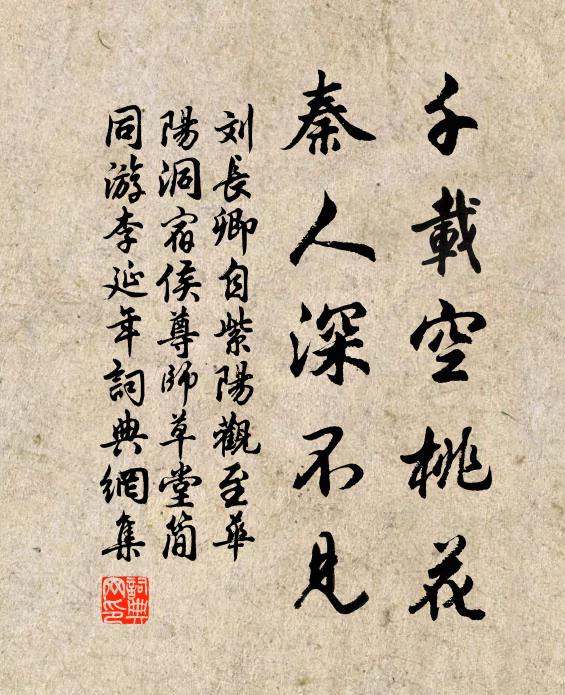 千載空桃花
秦人深不見
刘長卿自紫陽觀至華
陽洞宿侯尊師草堂简
同游李延年詞典網集
詞典网印